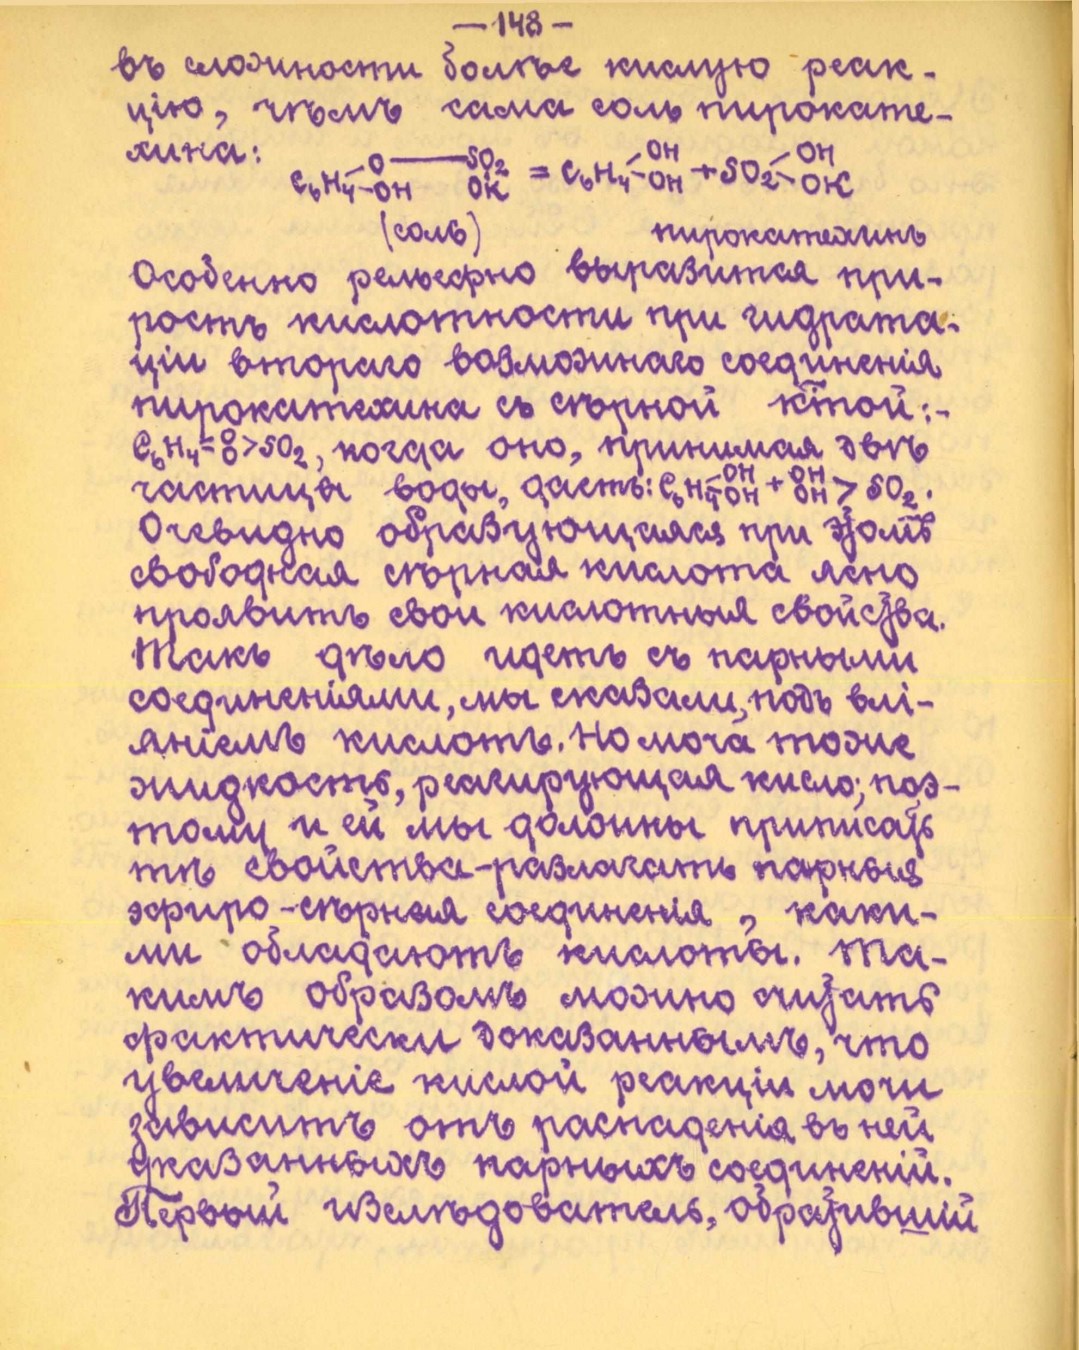 — 148 —
въ сложности болѣе кислую реак-
цію, чѣмъ сама соль пирокате-
хина:
C₆H₄<O—SO₂ OH OK = C₆H₄<OH OH + SO₂<OH OK
(соль) пирокатехинъ
Особенно рельефно выразится при-
ростъ кислотности при гидрата-
ціи второго возможнаго соединенія
пирокатехина съ сѣрной к͞той:-
C₆H₄=O O>SO₂, когда оно, принимая двѣ
частицы воды, дастъ: C₆H₄OH OH + OH OH > SO₂.
Очевидно образующаяся при этомъ
свободная сѣрная кислота ясно
проявитъ свои кислотныя свойства.
Такъ дѣло идетъ съ парными
соединеніями, мы сказали, подъ влі-
яніемъ кислотъ. Но моча тоже
жидкость, реагирующая кисло; поэ-
тому и ей мы должны приписать
тѣ свойства-разлагать парныя
эфиро-сѣрныя соединенія, каки-
ми обладаютъ кислоты. Та-
кимъ образомъ можно считать
фактически доказаннымъ, что
увеличеніе кислой реакціи мочи
зависитъ отъ распаденія въ ней
указанныхъ парныхъ соединеній.
Первый изслѣдователь, обратившій